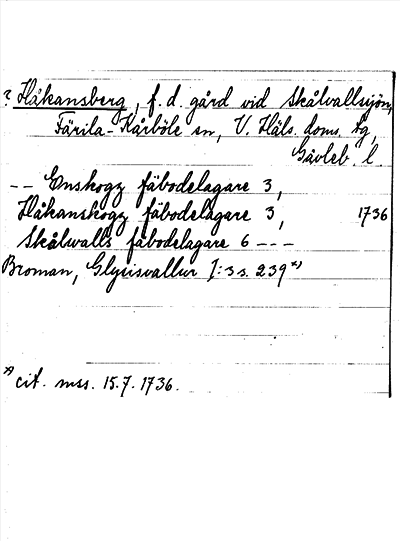 ? Håkansberg, f. d. gård vid Skålvallsjön,
Färila-Kårböle sn, V. Häls. doms. tg,
Gävleb. l.
-- Enskogz fäbodelagare 3,
Håkanskogz fäbodelagare 3, 1736
Skålwalls fäbodelagare 6 ---
Broman, Glysisvallur I:3 s. 239 x)
x) cit. mss. 15.7. 1736.